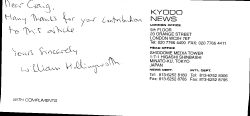 Dear Craig,
Many thanks for your contribution
to this article
Yours Sincerely
William Hollingworth
KYODO
NEWS
LONDON OFFICE
5th FLOOR
20 ORANGE STREET
LONDON WC2H 7EF
HEAD OFFICE
SHIODOME MEDIA TOWER
1-7-1 HIGASHI SHIMBASHI
MINATO-KU, TOKYO
JAPAN
WITH COMPLIMENTS